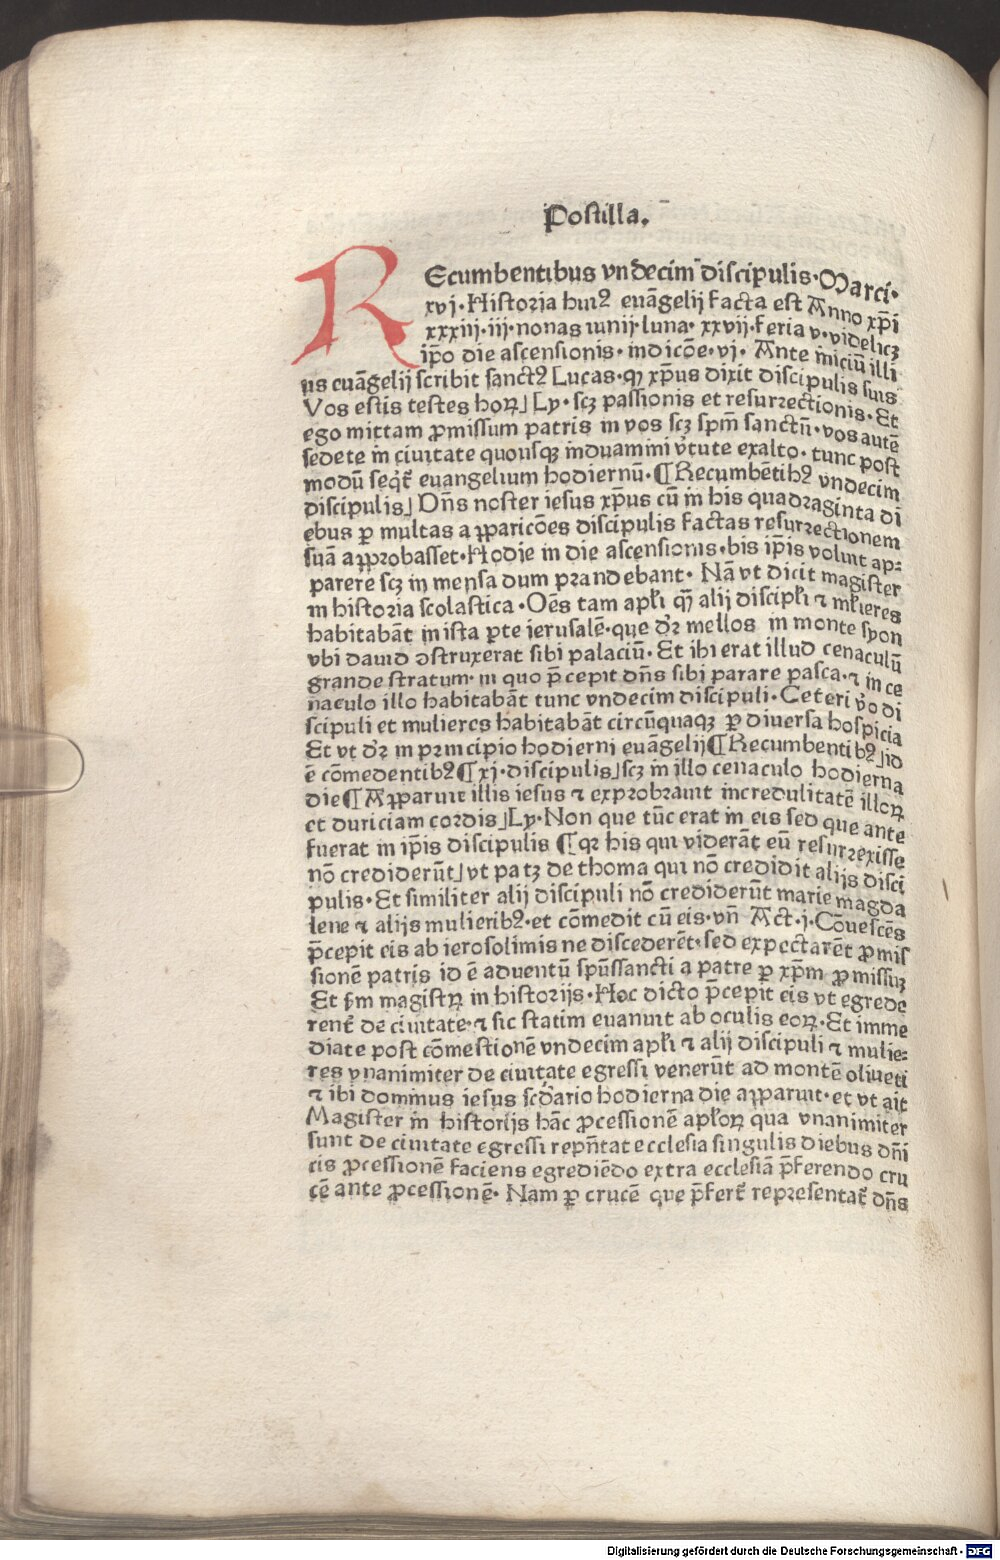 Postilla.
REcumbentibus vndecim discipulis·Marci·
xvj·Historia huiꝰ euāgelij facta est Anno xp̄i
xxxiij·iij·nonas iunij·luna·xxvij·feria v·videlicꝫ
ip̄o die ascensionis·indicōe·vj·Ante īniciū illi
us euāgelij scribit sanctꝰ Lucas·ꝙ xp̄us dixit discipulis suis
Vos estis testes hoꝝ⌋Ly·scꝫ passionis et resurrectionis·Et
ego mittam ꝓmissum patris in vos scꝫ spm̄ sanctū·vos autē
sedete in ciuitate quousqꝫ induamini v̓tute exalto·tunc post
modū seq̇t᷑ euangelium hodiernū·¶Recumbētibꝰ vndecim
discipulis⌋Dn̄s noster iesus xp̄us cū in his quadraginta di
ebus ꝑ multas apparicōes discipulis factas resurrectionem
suā approbasset·Hodie in die ascensionis·bis ip̄is voluit ap⸗
parere scꝫ in mensa dum prandebant·Nā vt dicit magister
in historia scolastica·Oēs tam apl̓i qꝫ̄ alij discipl̓i ⁊ ml̓ieres
habitabāt in ista ꝑte ierusalē·que dr̄ mellos in monte syon
vbi dauid ꝯstruxerat sibi palaciū·Et ibi erat illud cenaculū
grande stratum·in quo p̄cepit dn̄s sibi parare pasca·⁊ in ce
naculo illo habitabāt tunc vndecim discipuli·Ceteri v̓o di
scipuli et mulieres habitabāt circūquaqꝫ ꝑ diuersa hospicia
Et vt dr̄ in principio hodierni euāgelij¶Recumbentibꝰ⌋id
ē cōmedentibꝰ¶xj·discipulis⌋scꝫ in illo cenaculo hodierna
die¶Apparuit illis iesus ⁊ exprobrauit incredulitatē illoꝝ
et duriciam cordis⌋Ly·Non que tūc erat in eis sed que ante
fuerat in ip̄is discipulis¶qꝛ his qui viderāt eū resurrexisse
nō crediderūt⌋vt patꝫ de thoma qui nō credidit alijs disci
pulis·Et similiter alij discipuli nō crediderūt marie magda
lene ⁊ alijs mulieribꝰ·et cōmedit cū eis·vn̄ Act·j·Cōuescēs
p̄cepit eis ab ierosolimis ne discederēt·sed expectarēt ꝓmis
sionē patris id ē aduentū spūssancti a patre ꝑ xp̄m ꝓmissuꝫ
Et sm̄ magistꝝ in historijs·Hoc dicto p̄cepit eis vt egrede
rent᷑ de ciuitate·⁊ sic statim euanuit ab oculis eoꝝ·Et imme
diate post cōmestionē vndecim apl̓i ⁊ alij discipuli ⁊ mulie⸗
res vnanimiter de ciuitate egressi venerūt ad montē oliueti
⁊ ibi dominus iesus scd̓ario hodierna die apparuit·et vt ait
Magister in historijs hāc ꝓcessionē apl̓oꝝ qua vnanimiter
sunt de ciuitate egressi repn̄tat ecclesia singulis diebus dn̄i
cis ꝓcessionē faciens egrediēdo extra ecclesiā p̄ferendo cru
cē ante ꝓcessionē·Nam ꝑ crucē que p̄fert᷑ representat᷑ dn̄s
Digitalisierung gefördert durch die Deutsche Forschungsgemeinschaft - DFG